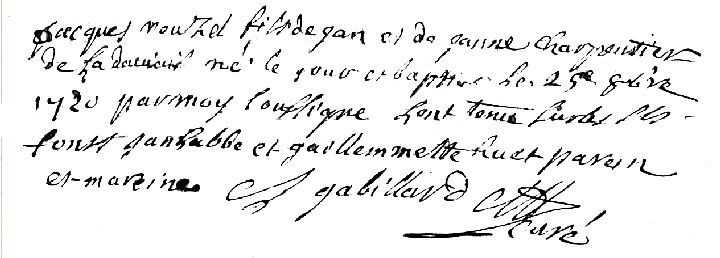 Jacques rouzel fils de jan et de janne charpentier
de né le jour et baptise le 25e 8bre
1720 par moy soussigne lont tenu sur les Sts
fonst jan labbe et guillemmette huet parein
et mareine. J gabillard
curé